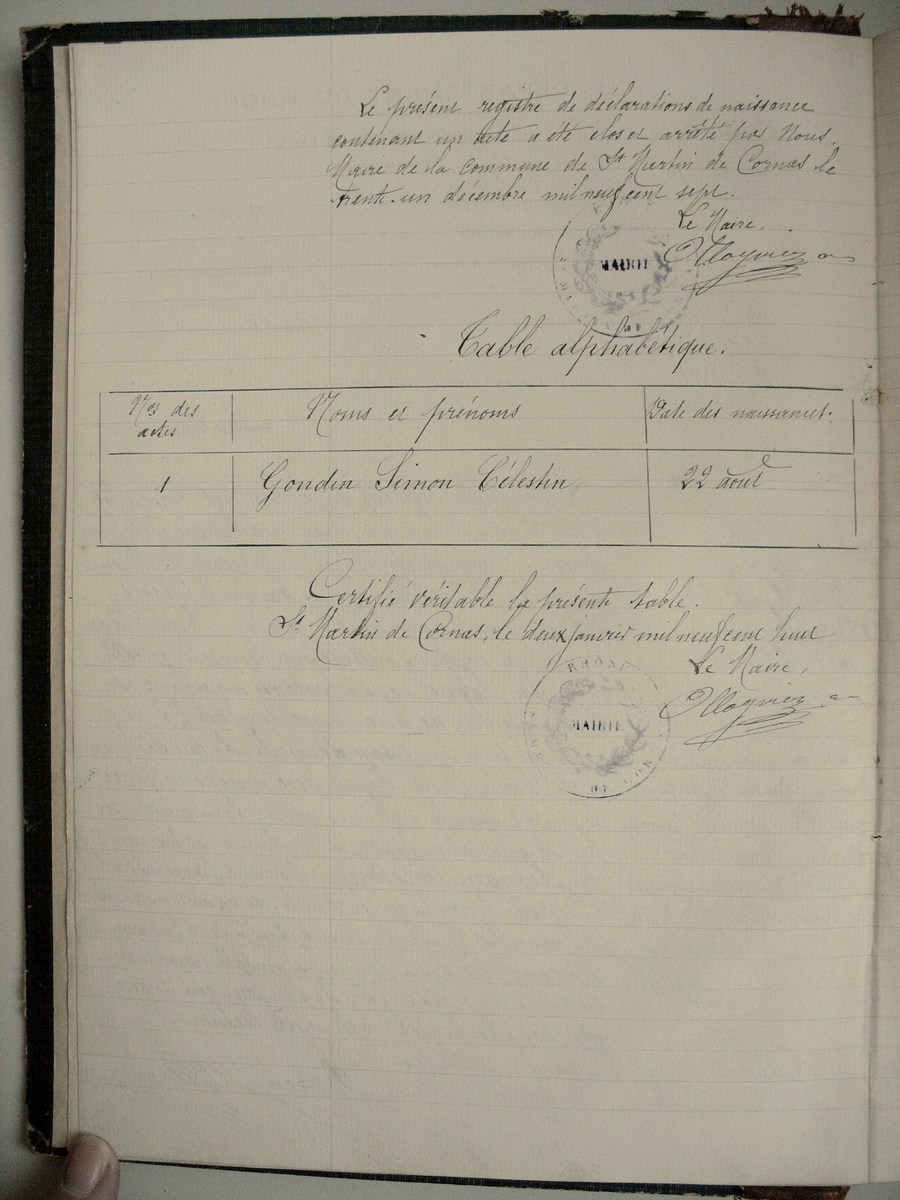 Le présent registre de déclarations de naissance
contenant un acte a été clos et arrêté par Nous,
Maire de la commune de St Martin de Cornas, le
trente-un décembre mil neuf cent sept.
Le Maire.
MAIRIE
Table alphabétique.
Nos des actes
Noms et prénoms
Date des naissances.
1
Gondin Simon Célestin
22 août
Certifié véritable la présente table.
St Martin de Cornas, le deux janvier mil neuf cent huit
Le Maire,
RHÔNE
MAIRIE
DE COR